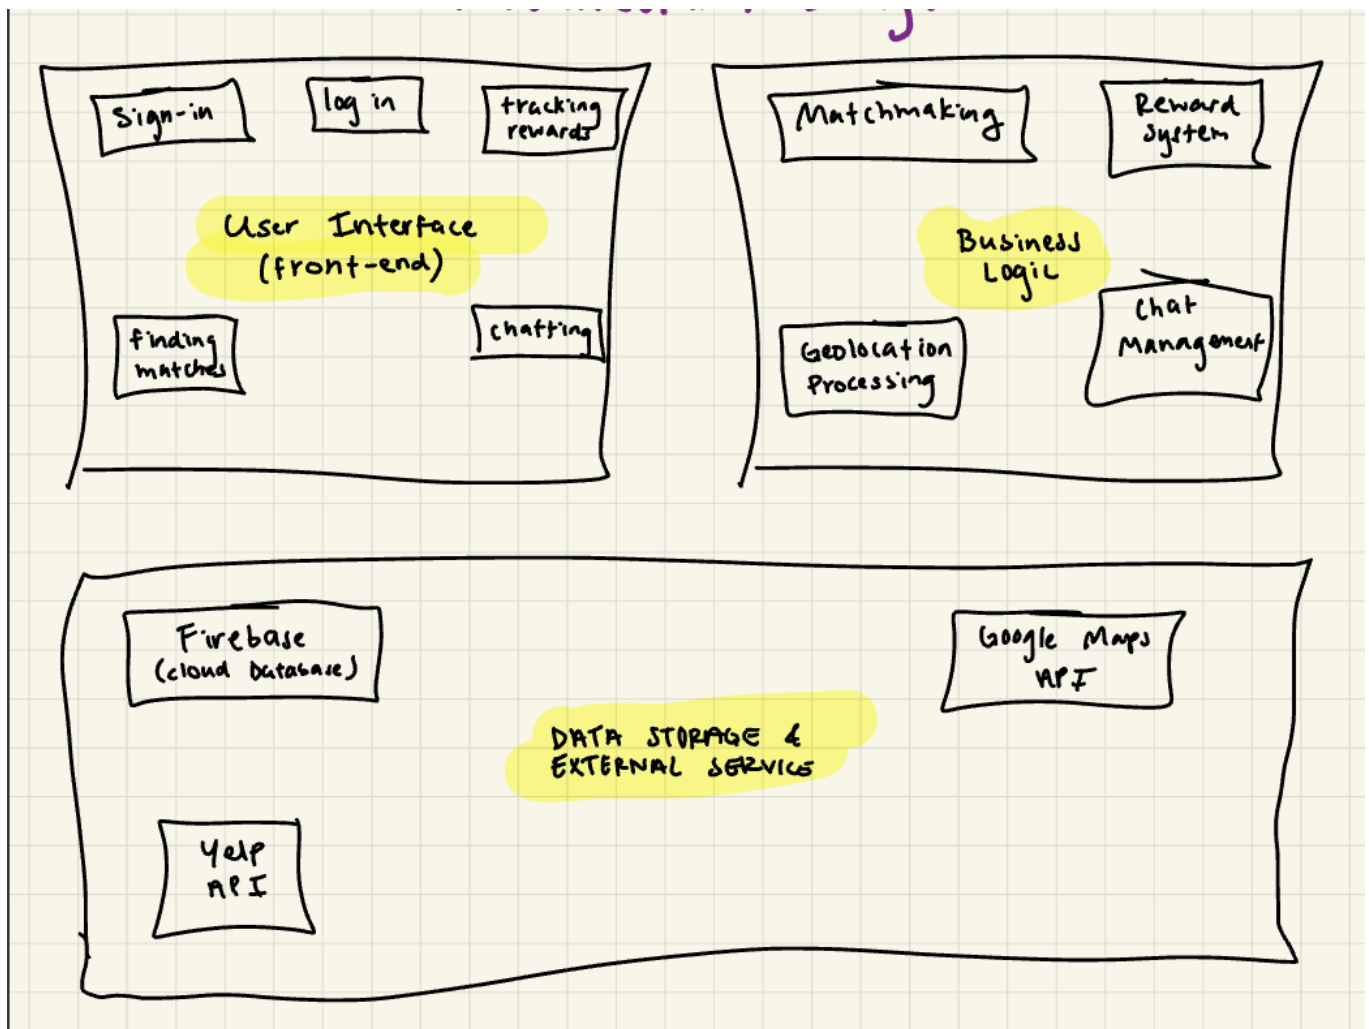 Sign-in
log in
tracking
rewards
User Interface
(front-end)
finding
matches
chatting
Matchmaking
Reward
System
Business
Logic
Geolocation
Processing
Chat
Management
Firebase
(cloud Database)
Google Maps
API
DATA STORAGE &
EXTERNAL SERVICE
Yelp
API